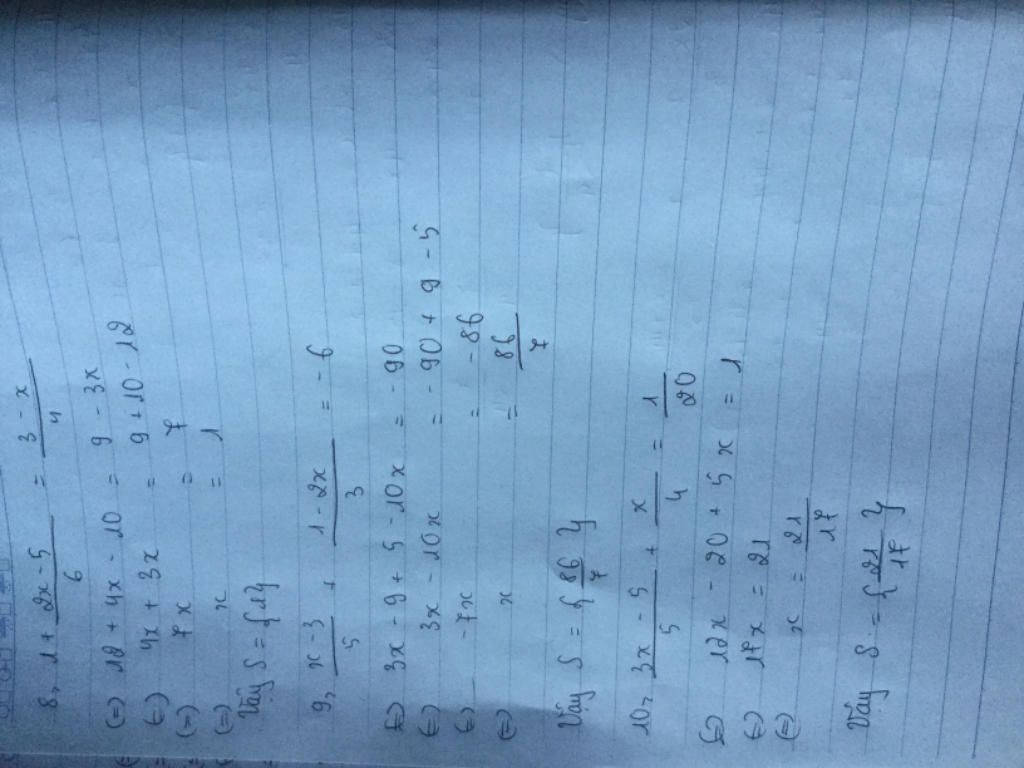 8, 1 + \frac{2x - 5}{6} = \frac{3 - x}{4}
(=) 12 + 4x - 10 = 9 - 3x
(=) 4x + 3x = 9 + 10 - 12
(=) 7x = 7
(=) x = 1
Vậy S = {1}
9, \frac{x - 3}{5} + \frac{1 - 2x}{3} = - 6
(=) 3x - 9 + 5 - 10x = - 90
(=) 3x - 10x = - 90 + 9 - 5
(=) - 7x = - 86
(=) x = \frac{86}{7}
Vậy S = {\frac{86}{7}}
10, \frac{3x - 5}{5} + \frac{x}{4} = \frac{1}{20}
(=) 12x - 20 + 5x = 1
(=) 17x = 21
(=) x = \frac{21}{17}
Vậy S = {\frac{21}{17}}